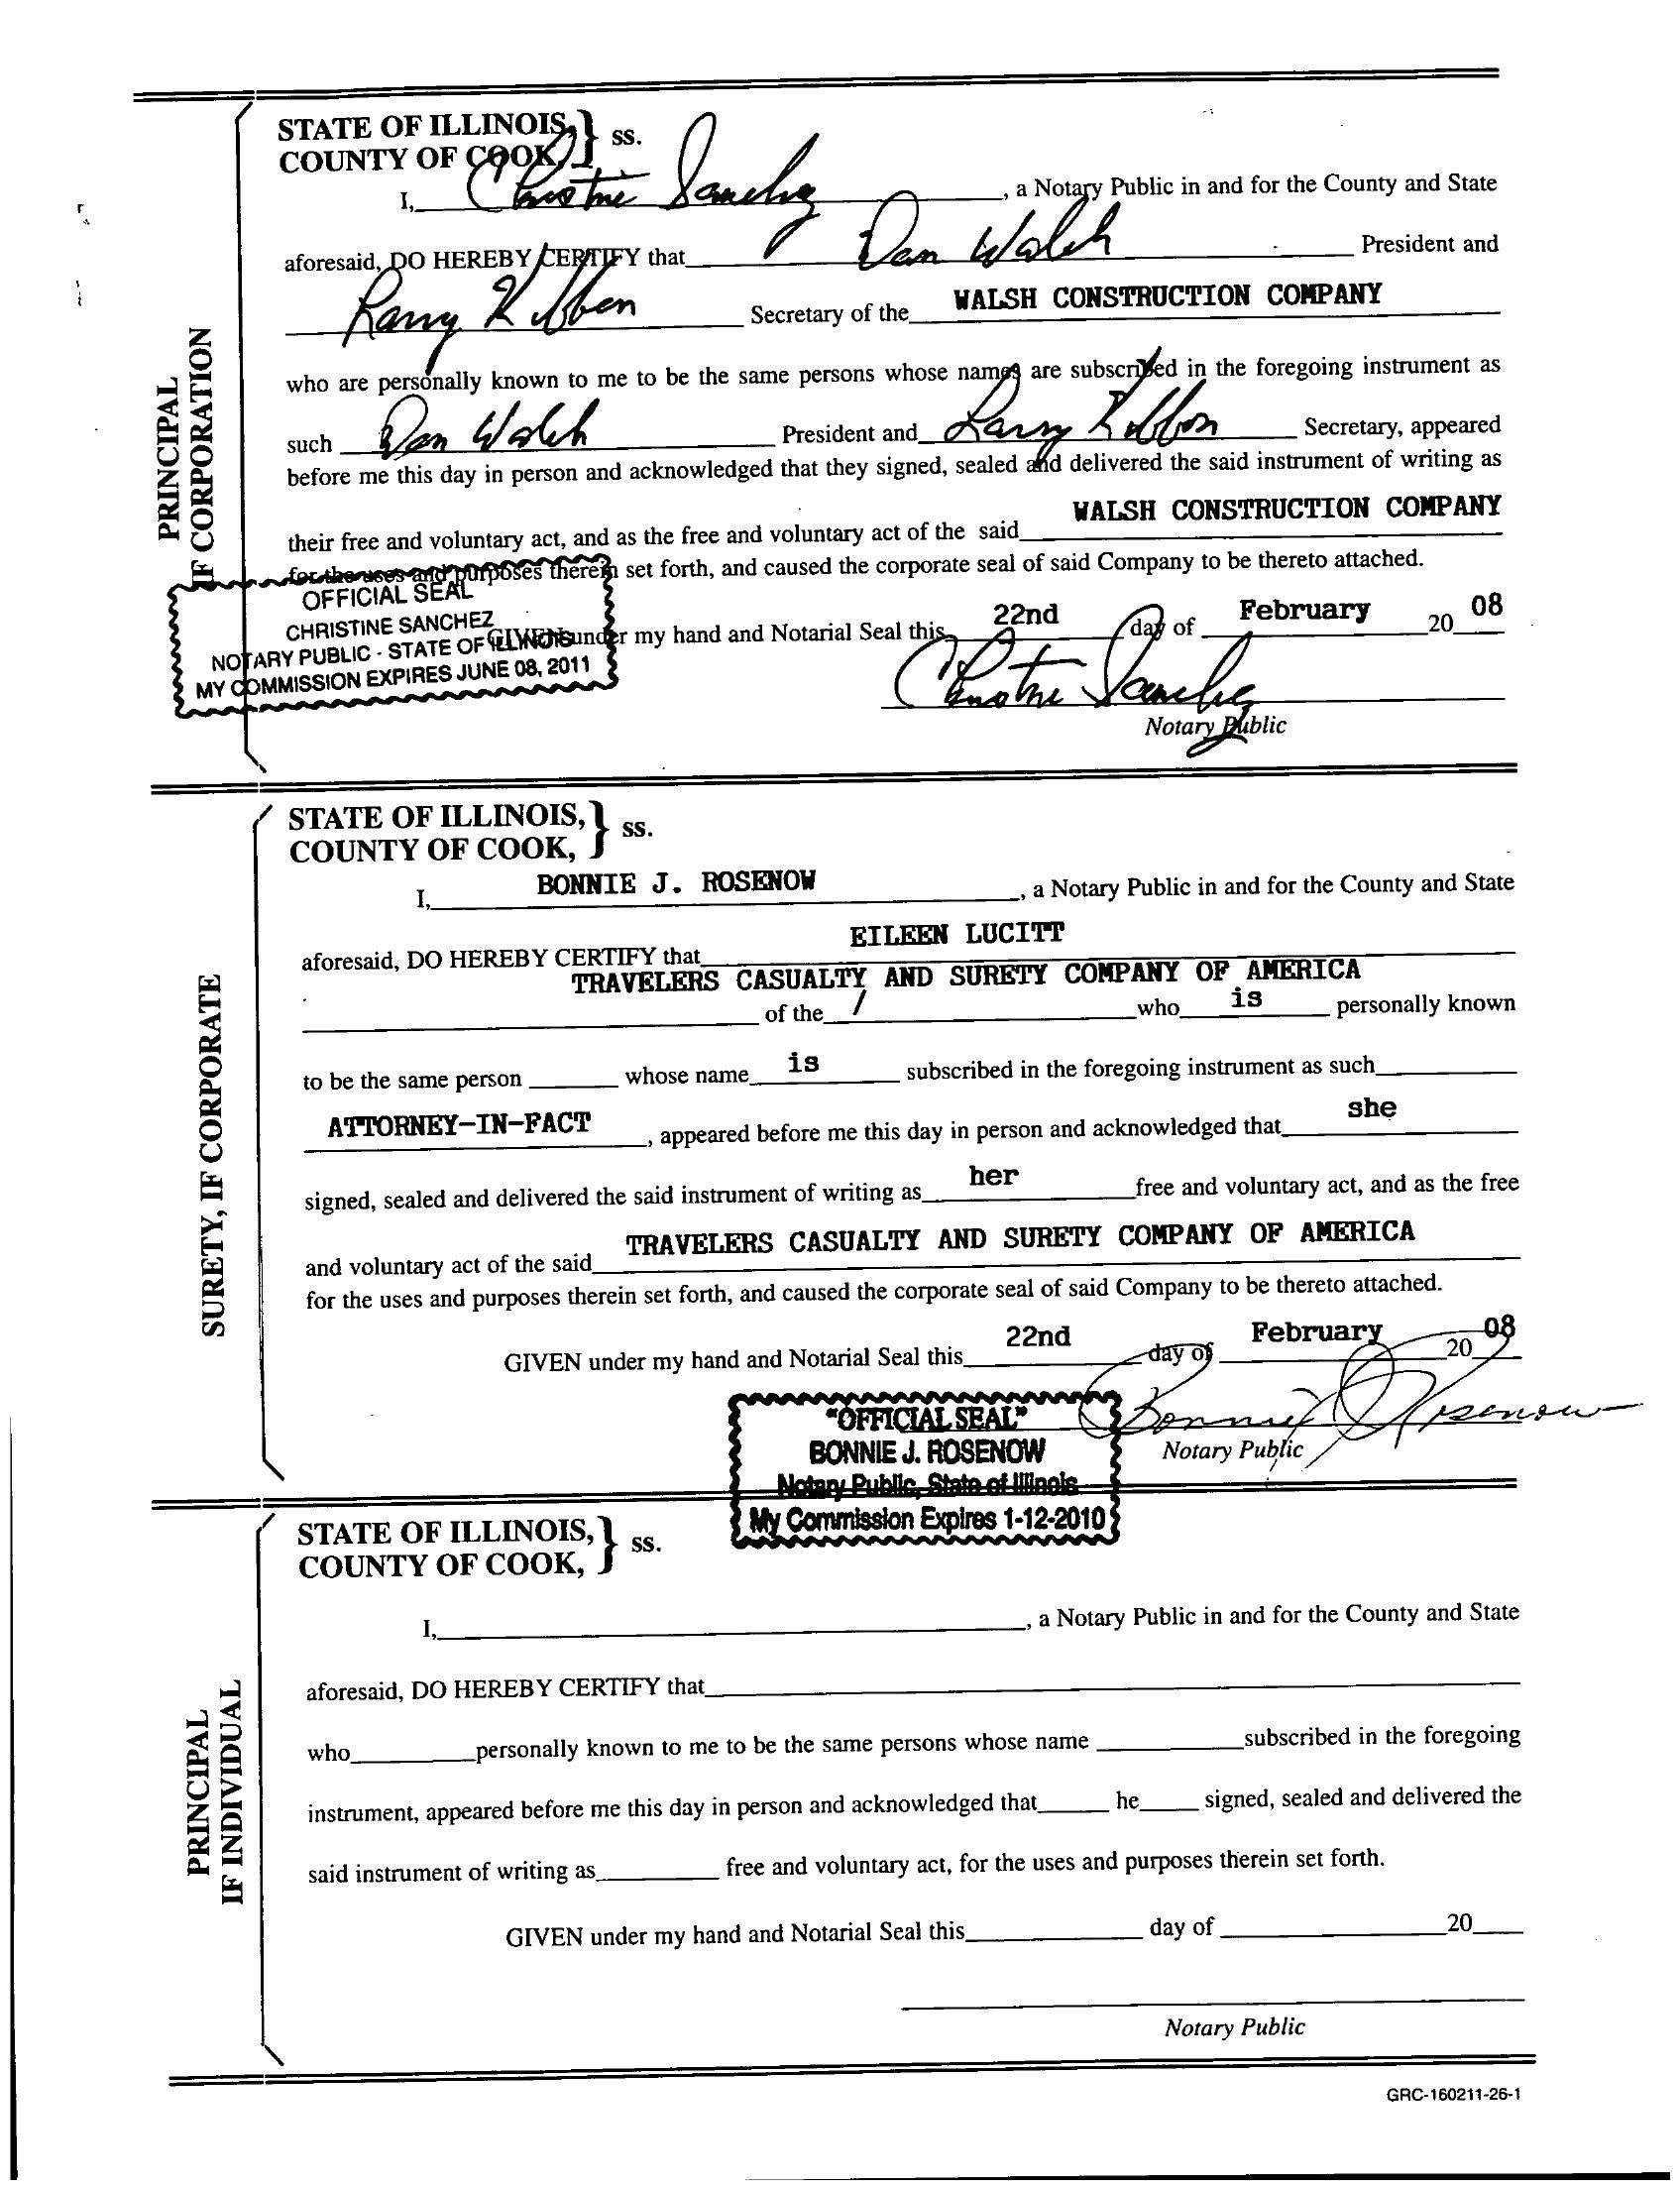 PRINCIPAL
IF CORPORATION
STATE OF ILLINOIS,
COUNTY OF COOK, } ss.
I, Christine Sanchez, a Notary Public in and for the County and State
aforesaid, DO HEREBY CERTIFY that Dan Walsh President and
Larry Kibbon Secretary of the WALSH CONSTRUCTION COMPANY
who are personally known to me to be the same persons whose names are subscribed in the foregoing instrument as
such Dan Walsh President and Larry Kibbon Secretary, appeared
before me this day in person and acknowledged that they signed, sealed and delivered the said instrument of writing as
their free and voluntary act, and as the free and voluntary act of the said WALSH CONSTRUCTION COMPANY
for the uses and purposes therein set forth, and caused the corporate seal of said Company to be thereto attached.
OFFICIAL SEAL
CHRISTINE SANCHEZ
NOTARY PUBLIC - STATE OF ILLINOIS
MY COMMISSION EXPIRES JUNE 08, 2011
GIVEN under my hand and Notarial Seal this 22nd day of February 20 08
Christine Sanchez
Notary Public
SURETY, IF CORPORATE
STATE OF ILLINOIS,
COUNTY OF COOK, } ss.
I, BONNIE J. ROSENOW, a Notary Public in and for the County and State
EILEEN LUCITT
aforesaid, DO HEREBY CERTIFY that
TRAVELERS CASUALTY AND SURETY COMPANY OF AMERICA
of the / who is personally known
to be the same person whose name is subscribed in the foregoing instrument as such
ATTORNEY-IN-FACT, appeared before me this day in person and acknowledged that she
signed, sealed and delivered the said instrument of writing as her free and voluntary act, and as the free
and voluntary act of the said TRAVELERS CASUALTY AND SURETY COMPANY OF AMERICA
for the uses and purposes therein set forth, and caused the corporate seal of said Company to be thereto attached.
GIVEN under my hand and Notarial Seal this 22nd day of February 20 08
Bonnie J Rosenow
Notary Public
"OFFICIAL SEAL"
BONNIE J. ROSENOW
Notary Public, State of Illinois
My Commission Expires 1-12-2010
PRINCIPAL
IF INDIVIDUAL
STATE OF ILLINOIS,
COUNTY OF COOK, } ss.
I, , a Notary Public in and for the County and State
aforesaid, DO HEREBY CERTIFY that
who personally known to me to be the same persons whose name subscribed in the foregoing
instrument, appeared before me this day in person and acknowledged that he signed, sealed and delivered the
said instrument of writing as free and voluntary act, for the uses and purposes therein set forth.
GIVEN under my hand and Notarial Seal this day of 20
Notary Public
GRC-160211-26-1